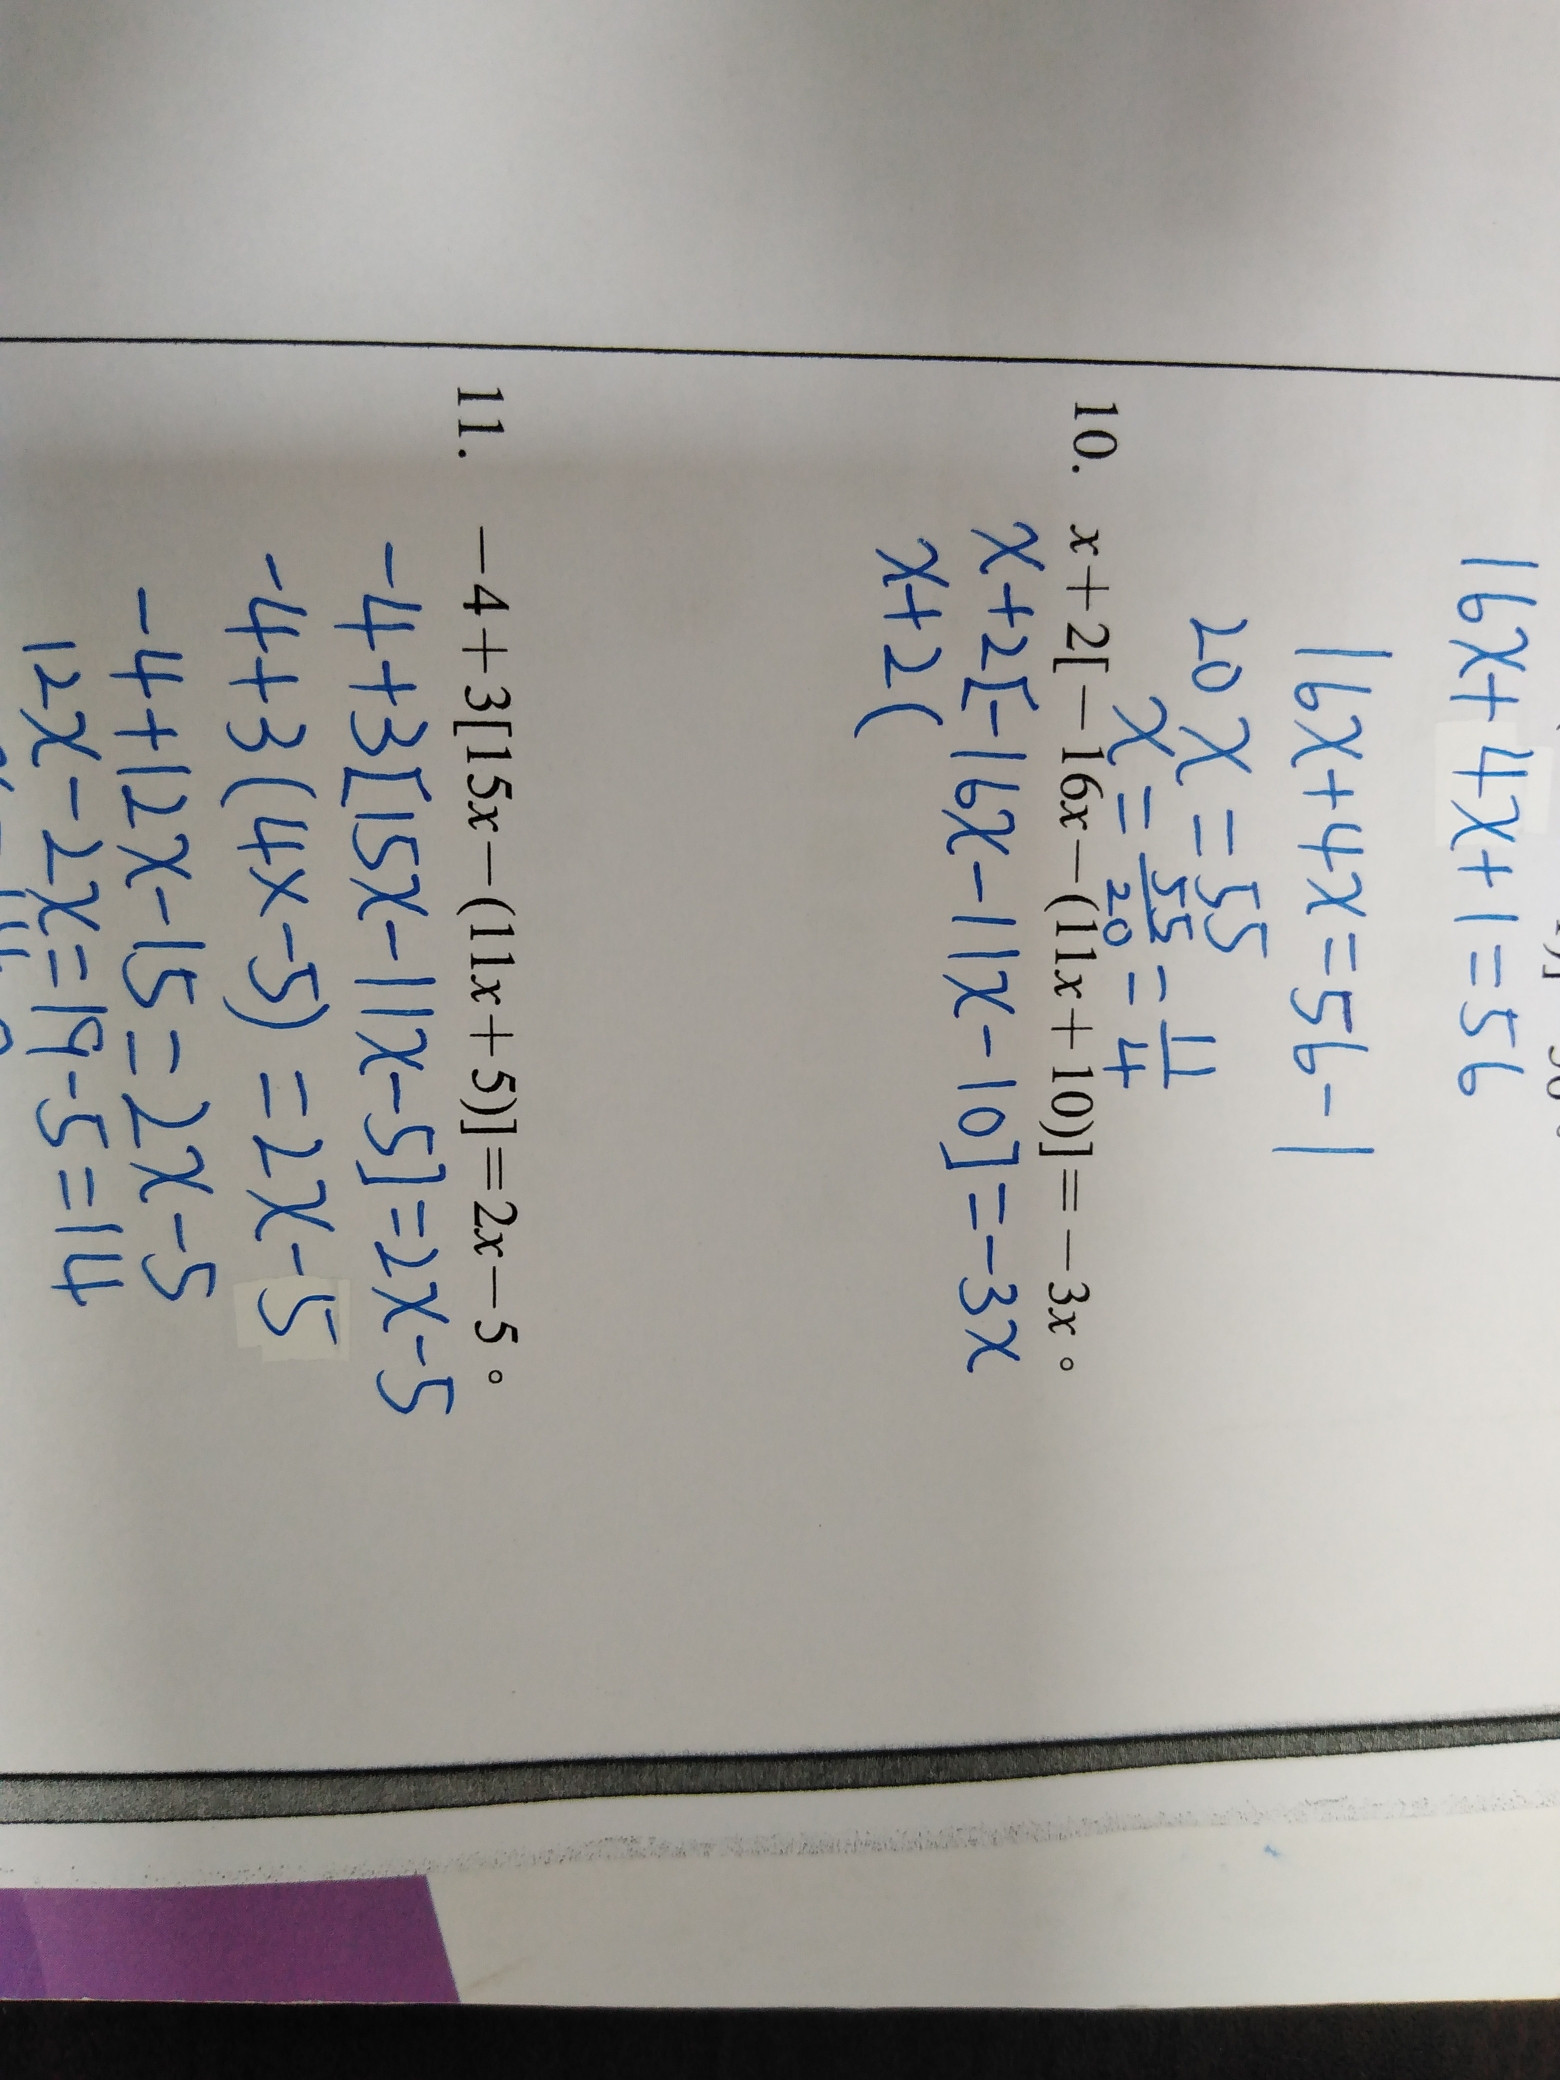 16x+4x+1=56
16x+4x=56-1
20x=55
x=55/20=11/4
10. x+2[-16x-(11x+10)]=-3x。
x+2[-16x-11x-10]=-3x
x+2(
11. -4+3[15x-(11x+5)]=2x-5。
-4+3[15x-11x-5]=2x-5
-4+3(4x-5)=2x-5
-4+12x-15=2x-5
12x-2x=19-5=14